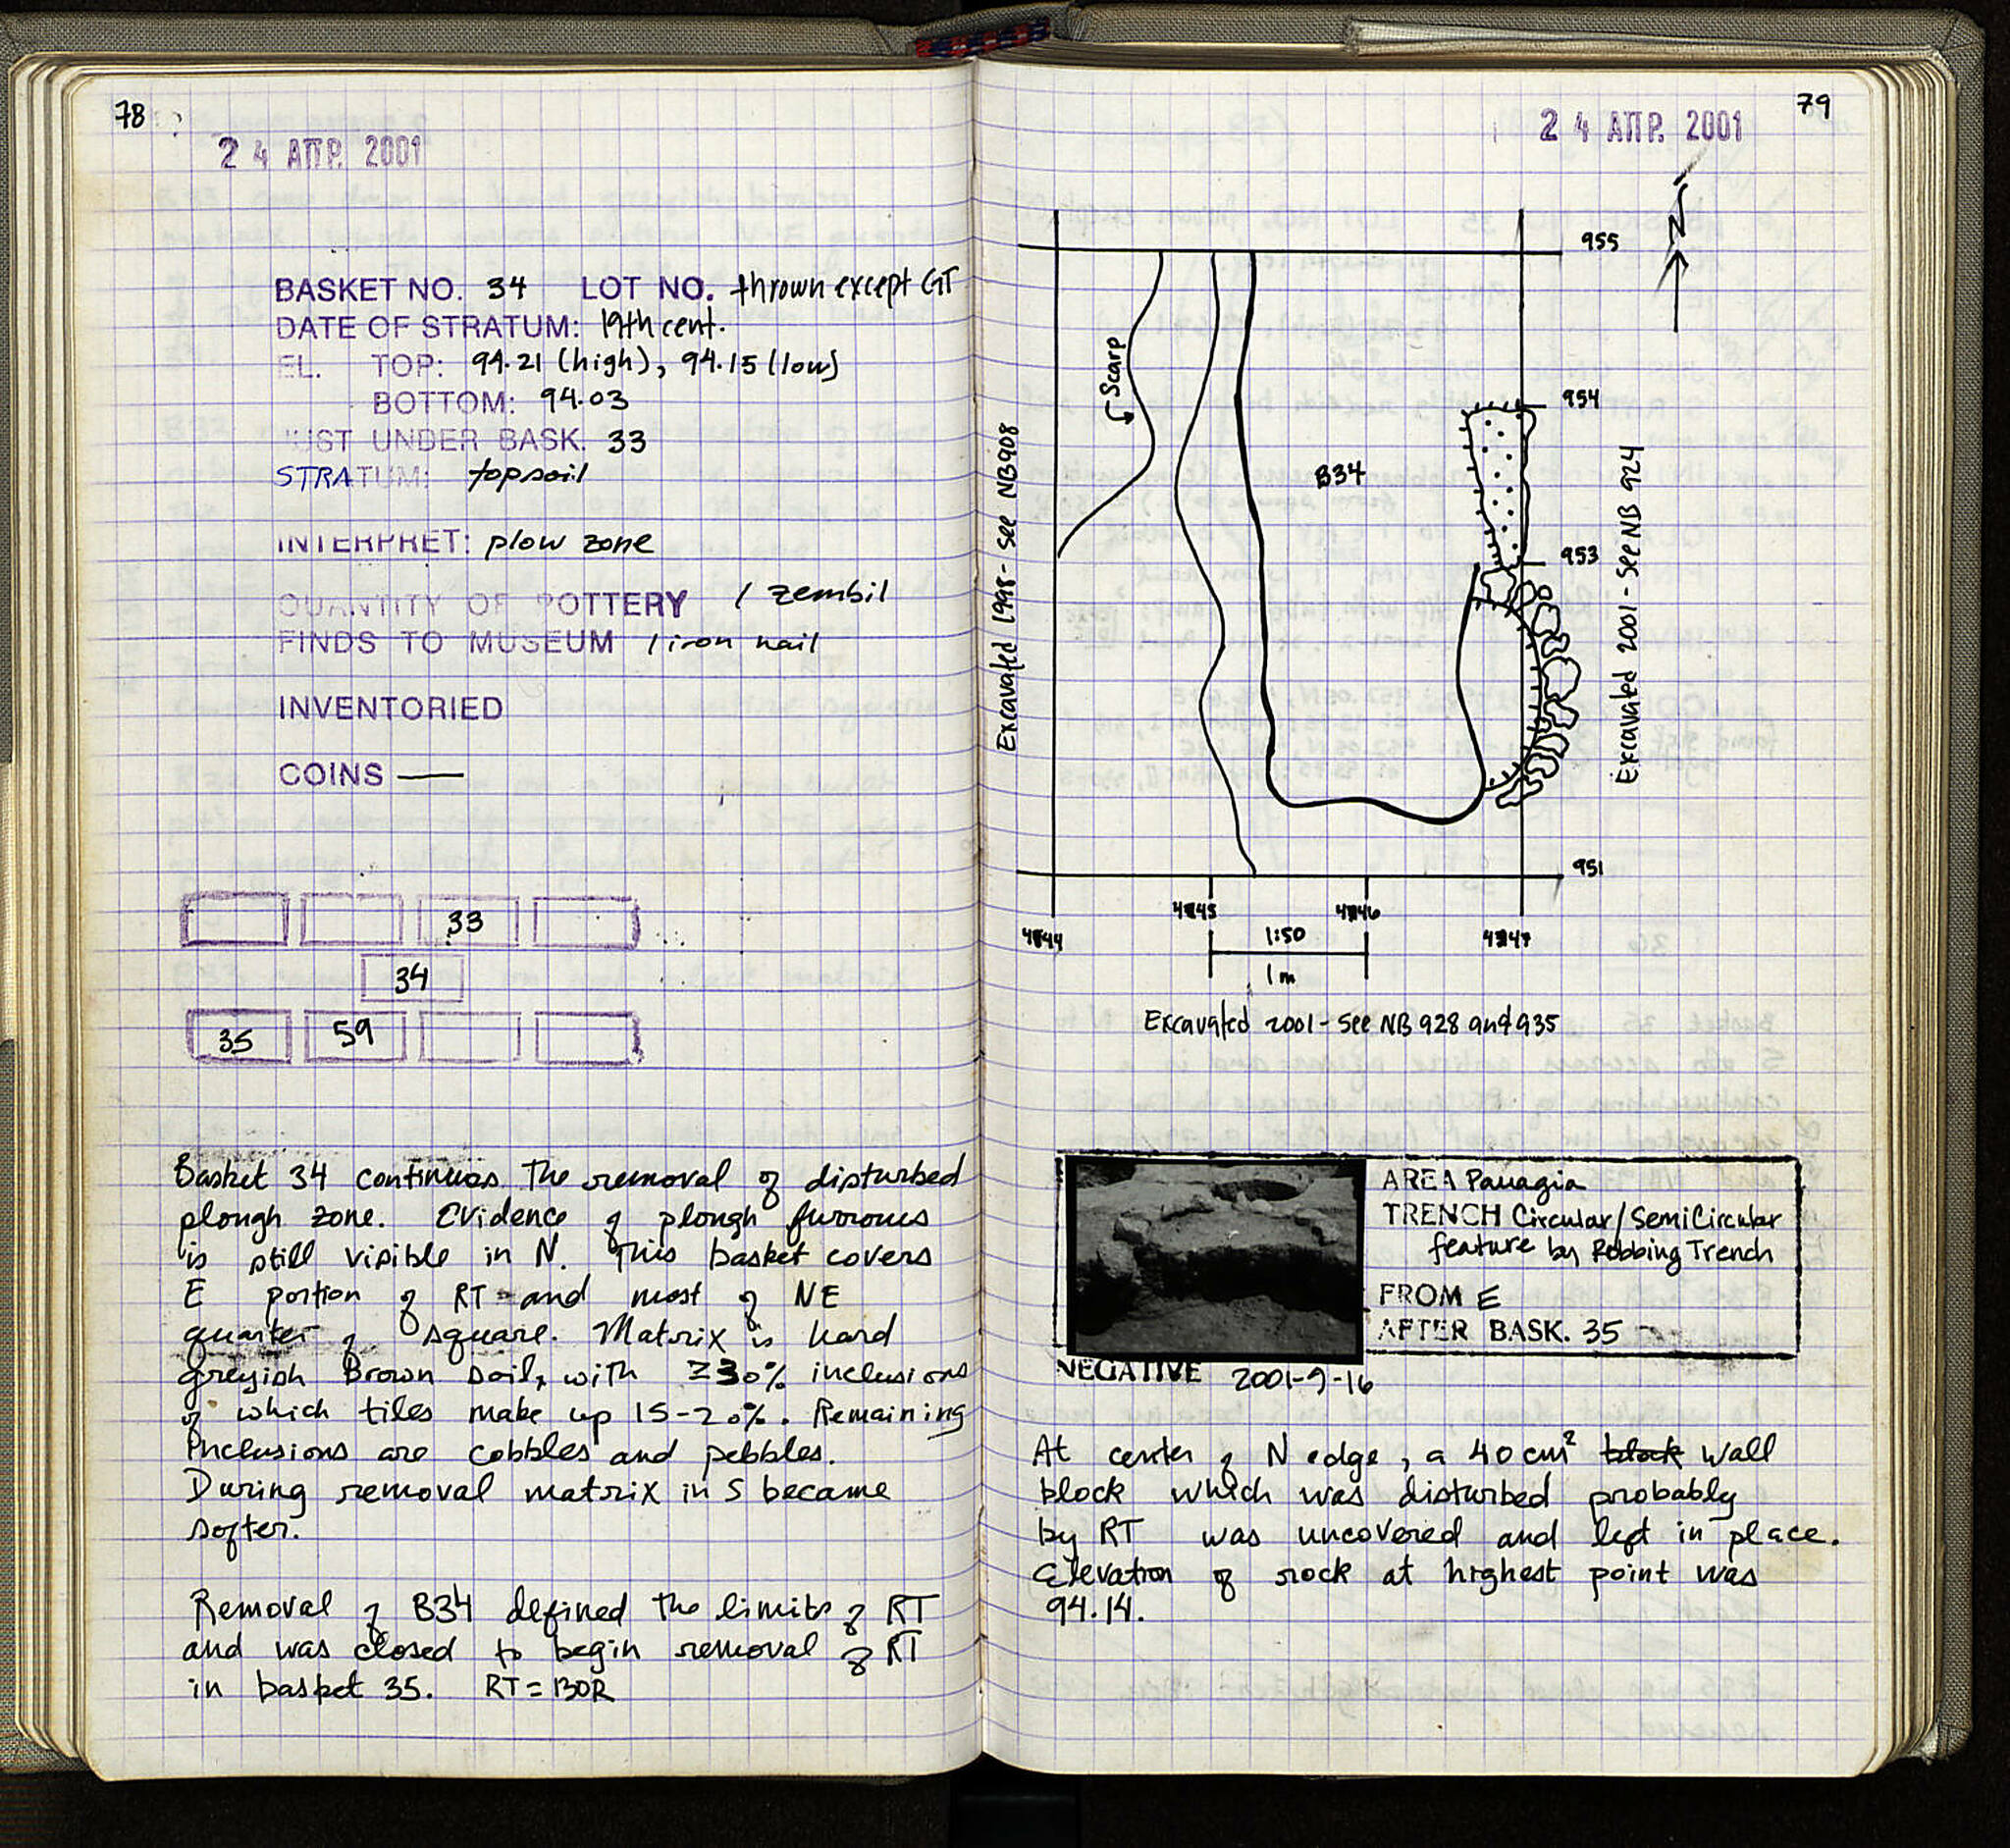 78
24 ΑΠΡ. 2001
BASKET NO. 34 LOT NO. thrown except GT
DATE OF STRATUM: 19th cent.
EL. TOP: 94.21 (high), 94.15 (low)
BOTTOM: 94.03
JUST UNDER BASK. 33
STRATUM: topsoil
INTERPRET: plow zone
QUANTITY OF POTTERY 1 zembil
FINDS TO MUSEUM 1 iron nail
INVENTORIED
COINS —
33
34
35 59
Basket 34 continues the removal of disturbed
plough zone. Evidence of plough furrows
is still visible in N. This basket covers
E portion of RT and most of NE
quarter of square. Matrix is hard
greyish Brown soil, with ≥30% inclusions
of which tiles make up 15-20%. Remaining
inclusions are cobbles and pebbles.
During removal matrix in S became
softer.
Removal of B34 defined the limits of RT
and was closed to begin removal of RT
in basket 35. RT = BOR
79
24 ΑΠΡ. 2001
N
955
Scarp
954
B34
953
Excavated 1998 - See NB908
Excavated 2001 - See NB 924
951
1:50
1m
Excavated 2001 - See NB 928 and 935
AREA Panagia
TRENCH Circular/SemiCircular
feature by Robbing Trench
FROM E
AFTER BASK. 35
NEGATIVE 2001-9-16
At center of N edge, a 40 cm² block wall
block which was disturbed probably
by RT was uncovered and left in place.
Elevation of rock at highest point was
94.14.